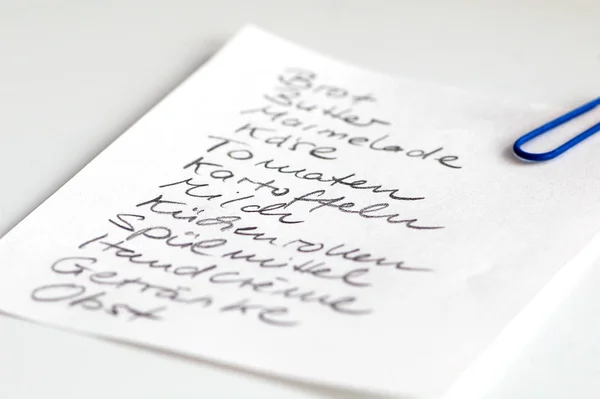 Brot
Butter
Marmelade
Käse
Tomaten
Kartoffeln
Milch
Küchenrollen
Spülmittel
Handcrème
Getränke
Obst